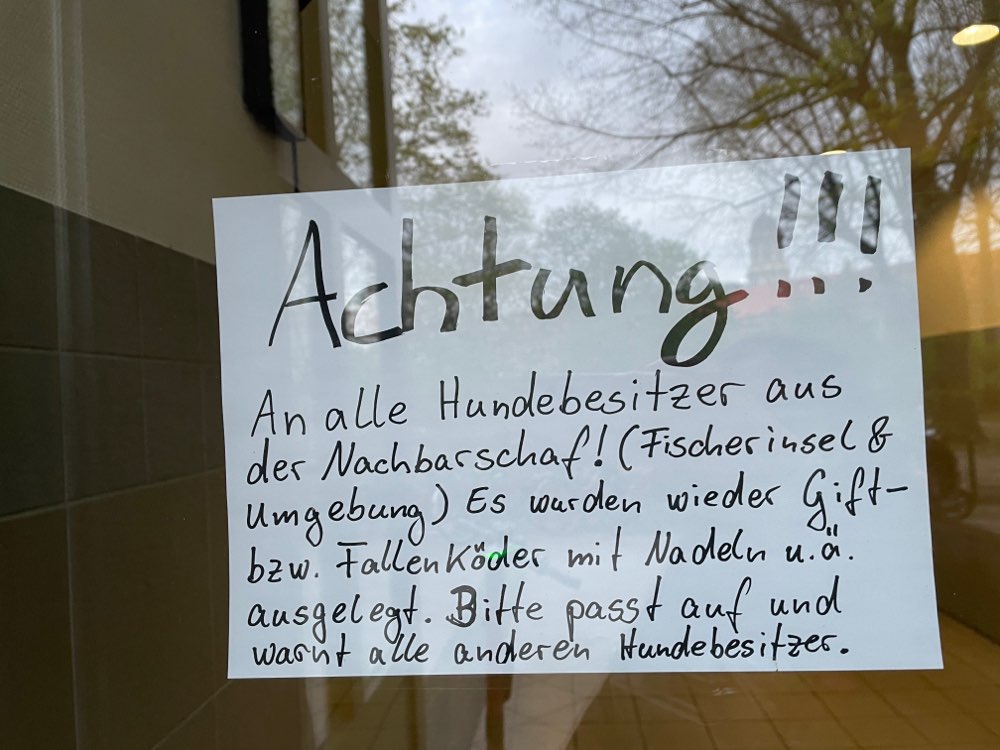 Achtung!!!
An alle Hundebesitzer aus
der Nachbarschaf! (Fischerinsel &
Umgebung) Es wurden wieder Gift-
bzw. Fallenköder mit Nadeln u.ä.
ausgelegt. Bitte passt auf und
warnt alle anderen Hundebesitzer.